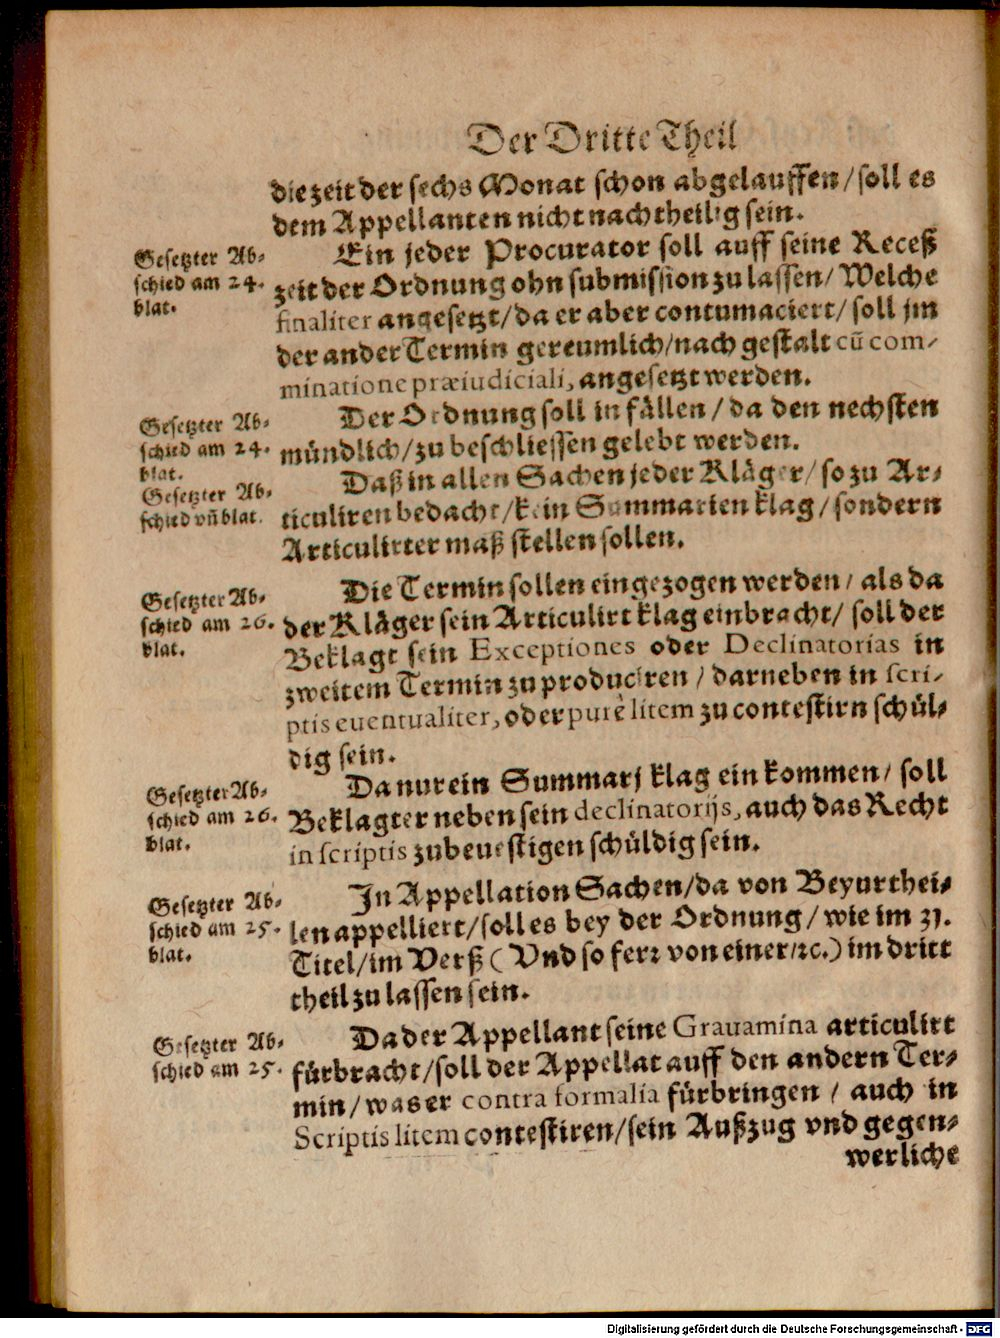 Der Dritte Theil
die zeit der sechs Monat schon abgelauffen/ soll es
dem Appellanten nicht nachtheilig sein.
Gesetzter Ab-
schied am 24.
blat.
Ein jeder Procurator soll auff seine Receß
zeit der Ordnung ohn submission zu lassen/ Welche
finaliter angesetzt/ da er aber contumaciert/ soll jm
der ander Termin gereumlich/ nach gestalt cū com-
minatione præiudiciali, angesetzt werden.
Gesetzter Ab-
schied am 24.
blat.
Der Ordnung soll in fällen/ da den nechsten
mündlich/ zu beschliessen gelebt werden.
Gesetzter Ab-
schied vñ blat.
Daß in allen Sachen jeder Kläger/ so zu Ar-
ticuliren bedacht/ kein Summarien klag/ sondern
Articulirter maß stellen sollen.
Gesetzter Ab-
schied am 26.
blat.
Die Termin sollen eingezogen werden/ als da
der Kläger sein Articulirt klag einbracht/ soll der
Beklagt sein Exceptiones oder Declinatorias in
zweitem Termin zu produciren/ darneben in scri-
ptis euentualiter, oder purè litem zu contestirn schül-
dig sein.
Gesetzter Ab-
schied am 26.
blat.
Da nur ein Summarj klag ein kommen/ soll
Beklagter neben sein declinatorijs, auch das Recht
in scriptis zubeuestigen schüldig sein.
Gesetzter Ab-
schied am 25.
blat.
In Appellation Sachen/ da von Beyurthei-
len appelliert/ soll es bey der Ordnung/ wie im 31.
Titel/ im Verß (Vnd so ferꝛ von einer/ ꝛc.) im dritt
theil zu lassen sein.
Gesetzter Ab-
schied am 25.
Da der Appellant seine Grauamina articulirt
fürbracht/ soll der Appellat auff den andern Ter-
min/ was er contra formalia fürbringen / auch in
Scriptis litem contestiren/ sein Außzug vnd gegen-
werliche
Digitalisierung gefördert durch die Deutsche Forschungsgemeinschaft - DFG